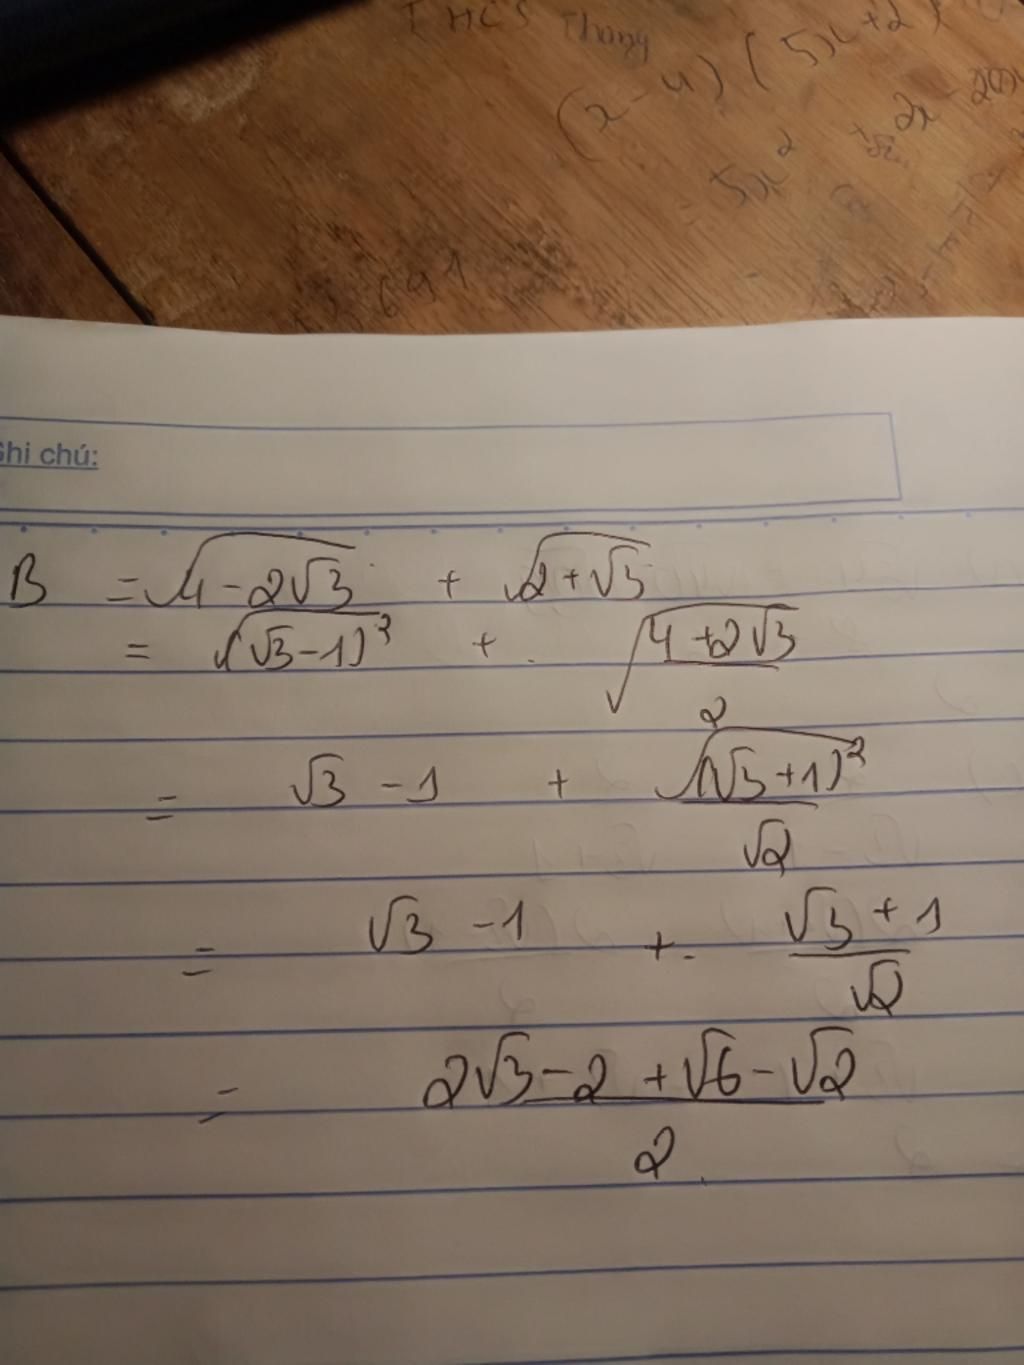 THCS Thang
(x-4)(5x+2)
5x²
691
Ghi chú:
B = √(4-2√3) + √(2+√3)
= √((√3-1)²) + √((4+2√3)/2)
= √3 -1 + √((√3+1)²)/√2
= √3 -1 + (√3+1)/√2
= (2√3-2+√6-√2)/2